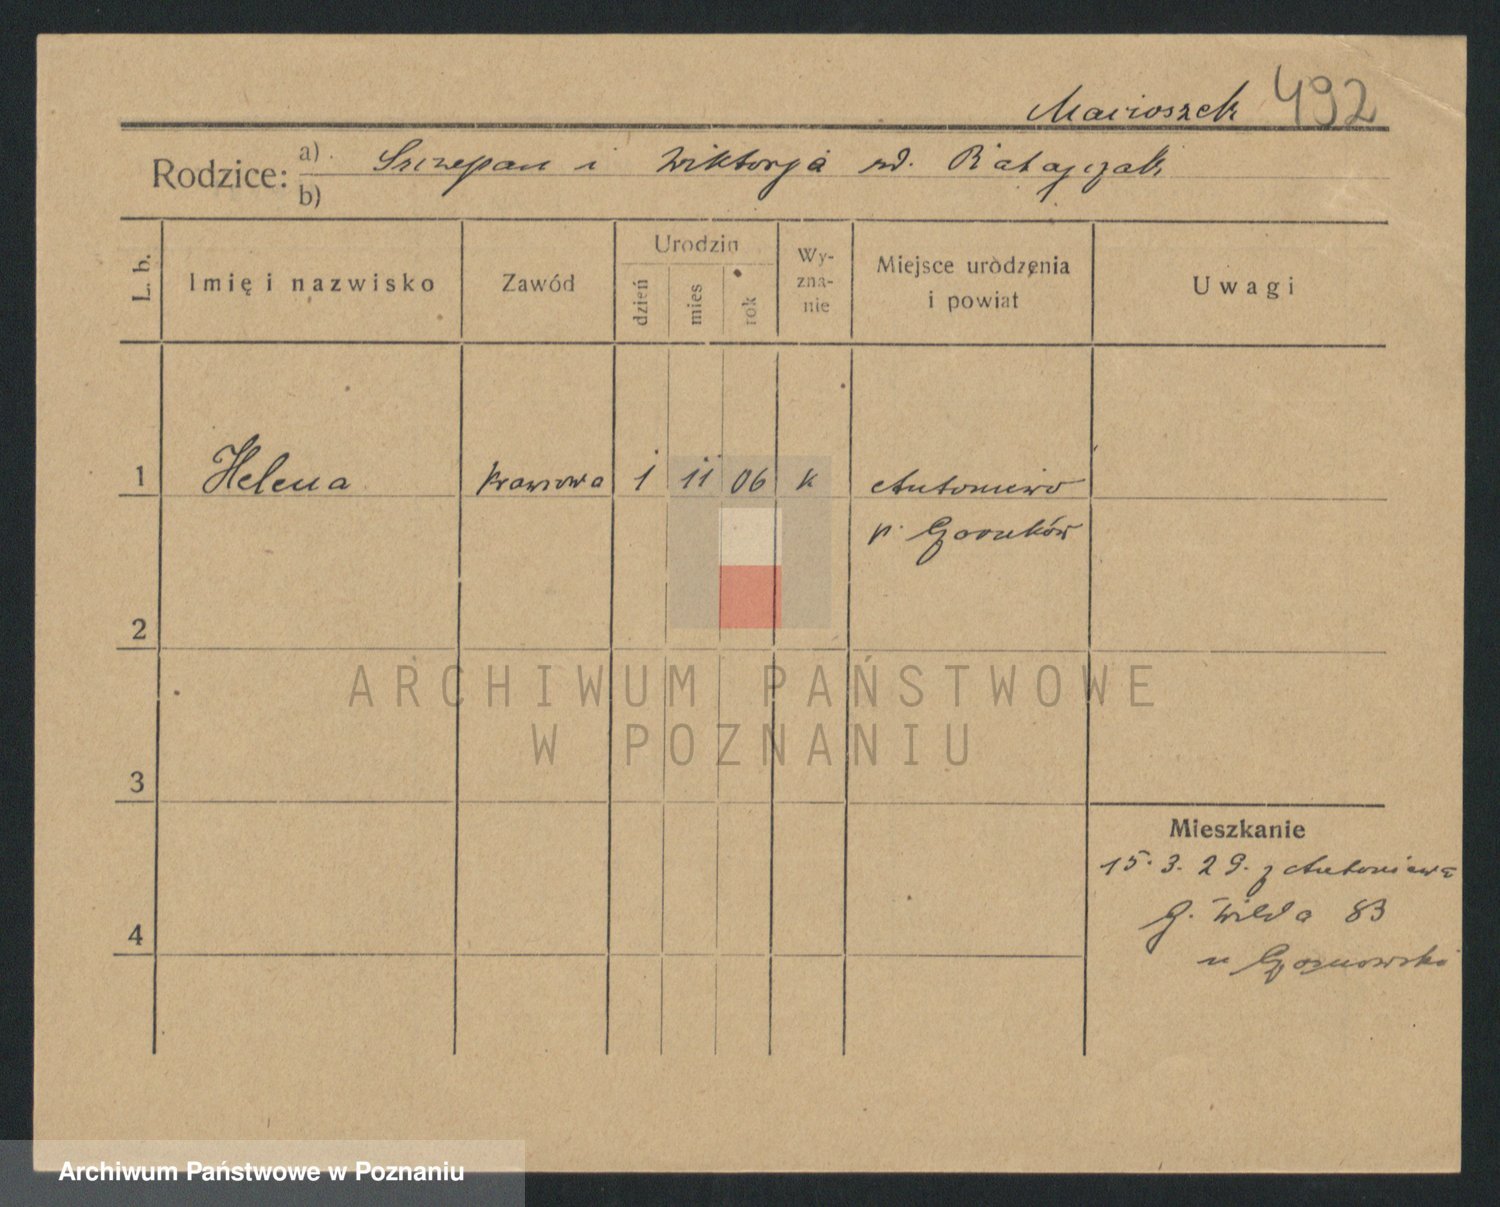 Marioszek 492
Rodzice: a) Szczepan i Wiktorja zd. Ratajczak
b)
L. b. Imię i nazwisko Zawód Urodzin dzień mies rok Wyznanie Miejsce uródzenia i powiat Uwagi
1 Helena krawcowa 1 11 06 k Antoniewo
p. Czarnków
2
ARCHIWUM PAŃSTWOWE
W POZNANIU
3
Mieszkanie
15. 3. 29. z Antoniewa
G. Wilda 83
4
u
Archiwum Państwowe w Poznaniu